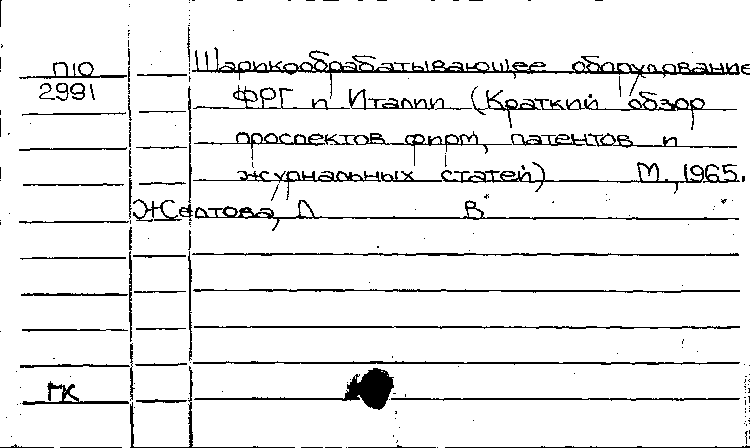 П10 Шарикообрабатывающее оборудование
2991 ФРГ и Италии (Краткий обзор
проспектов фирм, патентов и
журнальных статей) М., 1965.
Желтова, Л В
ГК